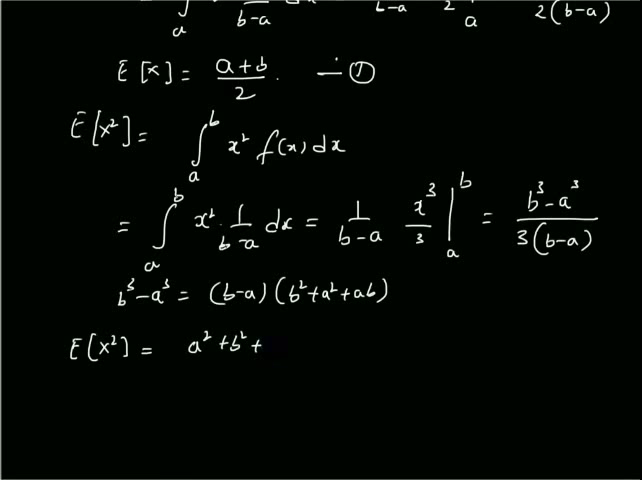 ∫ₐ b-a b-a 2 a 2(b-a)
E[x] = (a+b)/2 . — ①
E[x²] = ∫ₐᵇ x² f(x) dx
= ∫ₐᵇ x² · 1/(b-a) dx = 1/(b-a) x³/3 |ₐᵇ = (b³-a³)/(3(b-a))
b³-a³ = (b-a)(b²+a²+ab)
E[x²] = a²+b²+